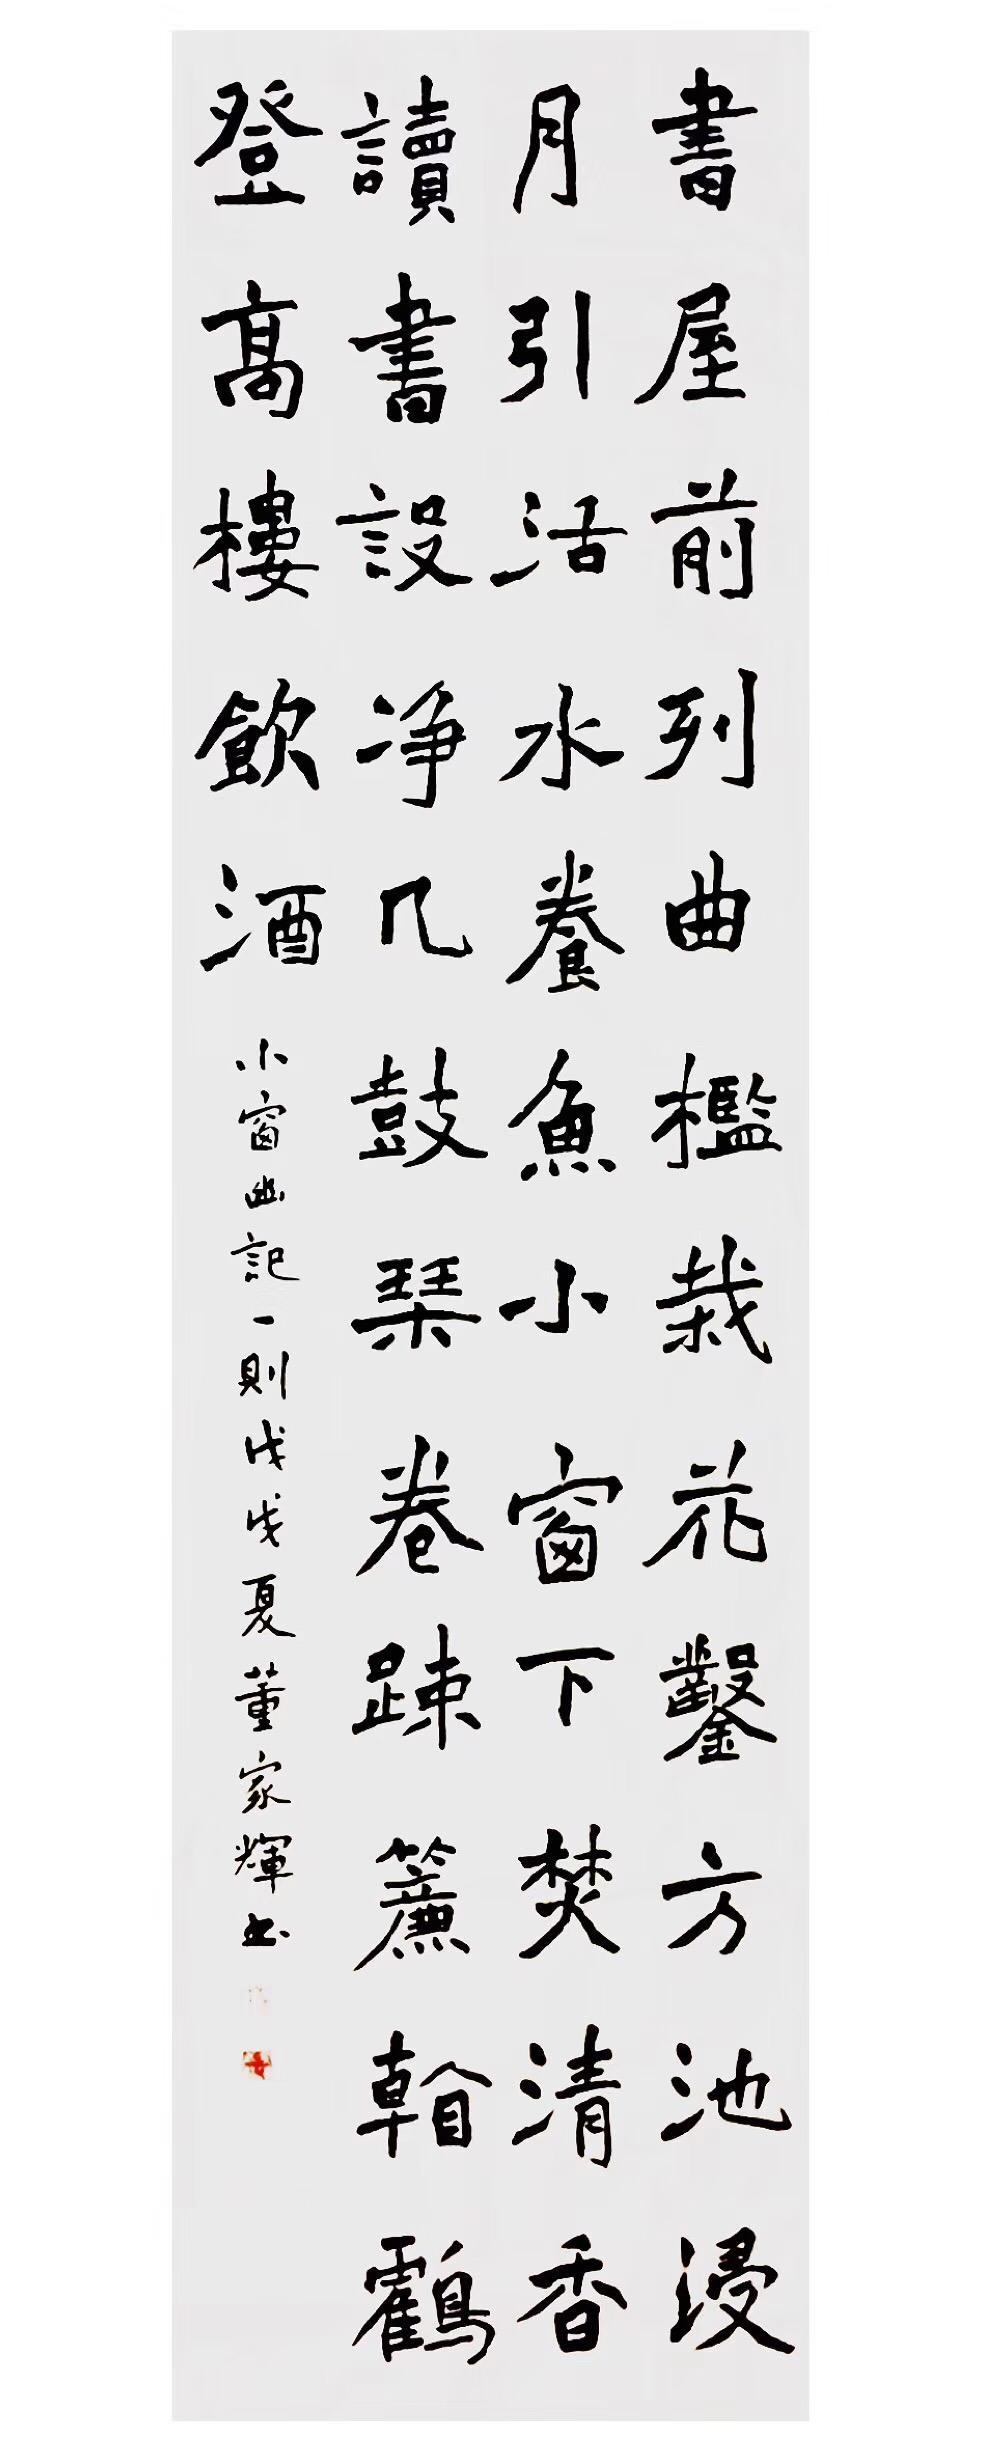 書屋前列曲檻栽花鑿方池浸
月引活水養魚小窗下焚清香
讀書設净几鼓琴卷疎簾看鸖
登髙樓飲酒
小窗幽記一則戊戌夏董家輝書